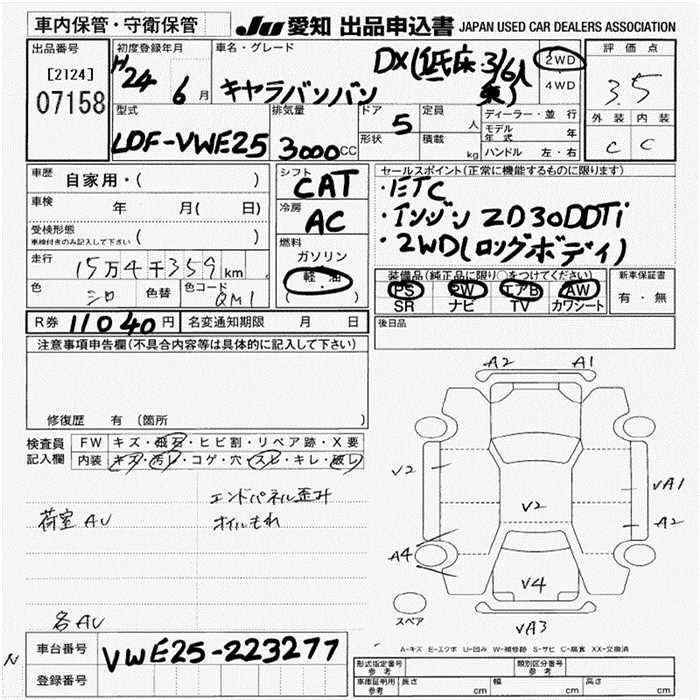 車内保管・守衛保管 JU 愛知 出品申込書 JAPAN USED CAR DEALERS ASSOCIATION
出品番号 初度登録年月 車名・グレード 2WD 評価点
[2124] H24 6月 キャラバンバン DX(低床 3/6人乗) 4WD 3.5
07158
型式 排気量 ドア 定員 人 ディーラー・並行 外装 内装
LDF-VWE25 3000CC 5 形状 積載 kg モデル年式 年 C C
ハンドル 左・右
車歴 自家用・( ) シフト CAT セールスポイント(正常に機能するものに限ります)
車検 年 月( 日) 冷房 AC ・ETC
受検形態 ( ) ・インジン ZD30DDTi
車検付きのみ記入して下さい 燃料 ・2WD(ロングボディ)
走行 15万4千359km ガソリン
軽・油
( )
色 シロ 色替 色コード QM1 装備品(純正品に限り○をつけてください) 新車保証書
PS PW エアB AW 有・無
SR ナビ TV カワシート
R券 11040円 名変通知期限 月 日 後日品
注意事項申告欄(不具合内容等は具体的に記入して下さい)
修復歴 有 (箇所 )
検査員記入欄 FW キズ・飛石・ヒビ割・リペア跡・X要
内装 キズ・汚レ・コゲ・穴・スレ・キレ・破レ
荷室AU エンドパネル歪み
オイルもれ
各AU
A2 A1
V2 VA1
V2 A2
A4
V4
スペア VA3
A-キズ E-エクボ U-凹み W-補修跡 S-サビ C-腐食 XX-交換済
N 車台番号 VWE25-223277
登録番号
形式指定番号 参考 類別区分番号 参考
車庫証明用 参考 長さ cm 幅 cm 高さ cm